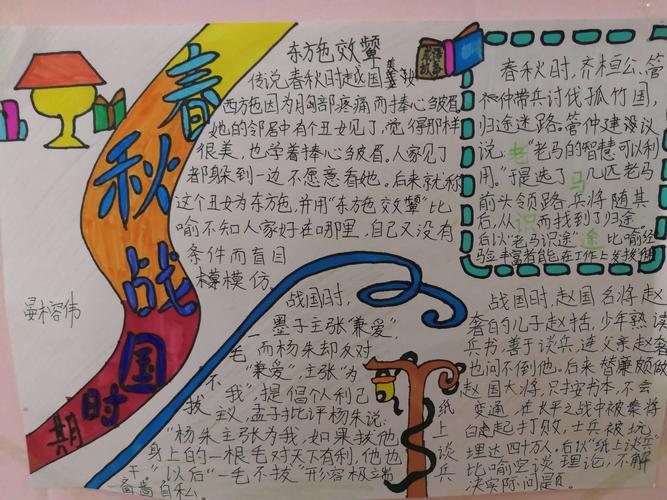 春秋战国时期
东方色效颦
传说,春秋时越国美
西方色因为胸部疼痛而捧心皱眉
她的邻居中有个丑女见了,觉得那样
很美,也学着捧心皱眉。人家见了
都躲到一边不愿意看她。后来就称
这个丑女为东方色,并用“东方色效颦”比
喻不知人家好在哪里,自己又没有
条件而盲目
模仿。
春秋时,齐桓公、管
仲带兵讨伐孤竹国,
归途迷路。管仲建议
说:“老马的智慧可以利
用。”于是选了几匹老马
前头领路,兵将随其
后,从而找到了归途
后以“老马识途”比喻经
验丰富者能在工作上发挥
老
马
识
途
战国时,
墨子主张“兼爱”,
而杨朱却反对
“兼爱”,主张“为
我”,提倡个人利己
主义,孟子批评杨朱说:
“杨朱主张为我,如果拔他
身上的一根毛对天下有利,他也
不干”以后“一毛不拔”形容极端
自私。
一毛不拔
战国时,赵国名将赵
奢的儿子赵括,少年熟读
兵书,善于谈兵,连父亲赵奢
也问不倒他。后来替廉颇做
赵国大将,只按书本,不会
变通,在长平之战中被秦将
白起打败,士兵被坑
埋达四十万人。后以“纸上谈兵”
比喻空谈理论,不解
决实际问题。
纸上谈兵